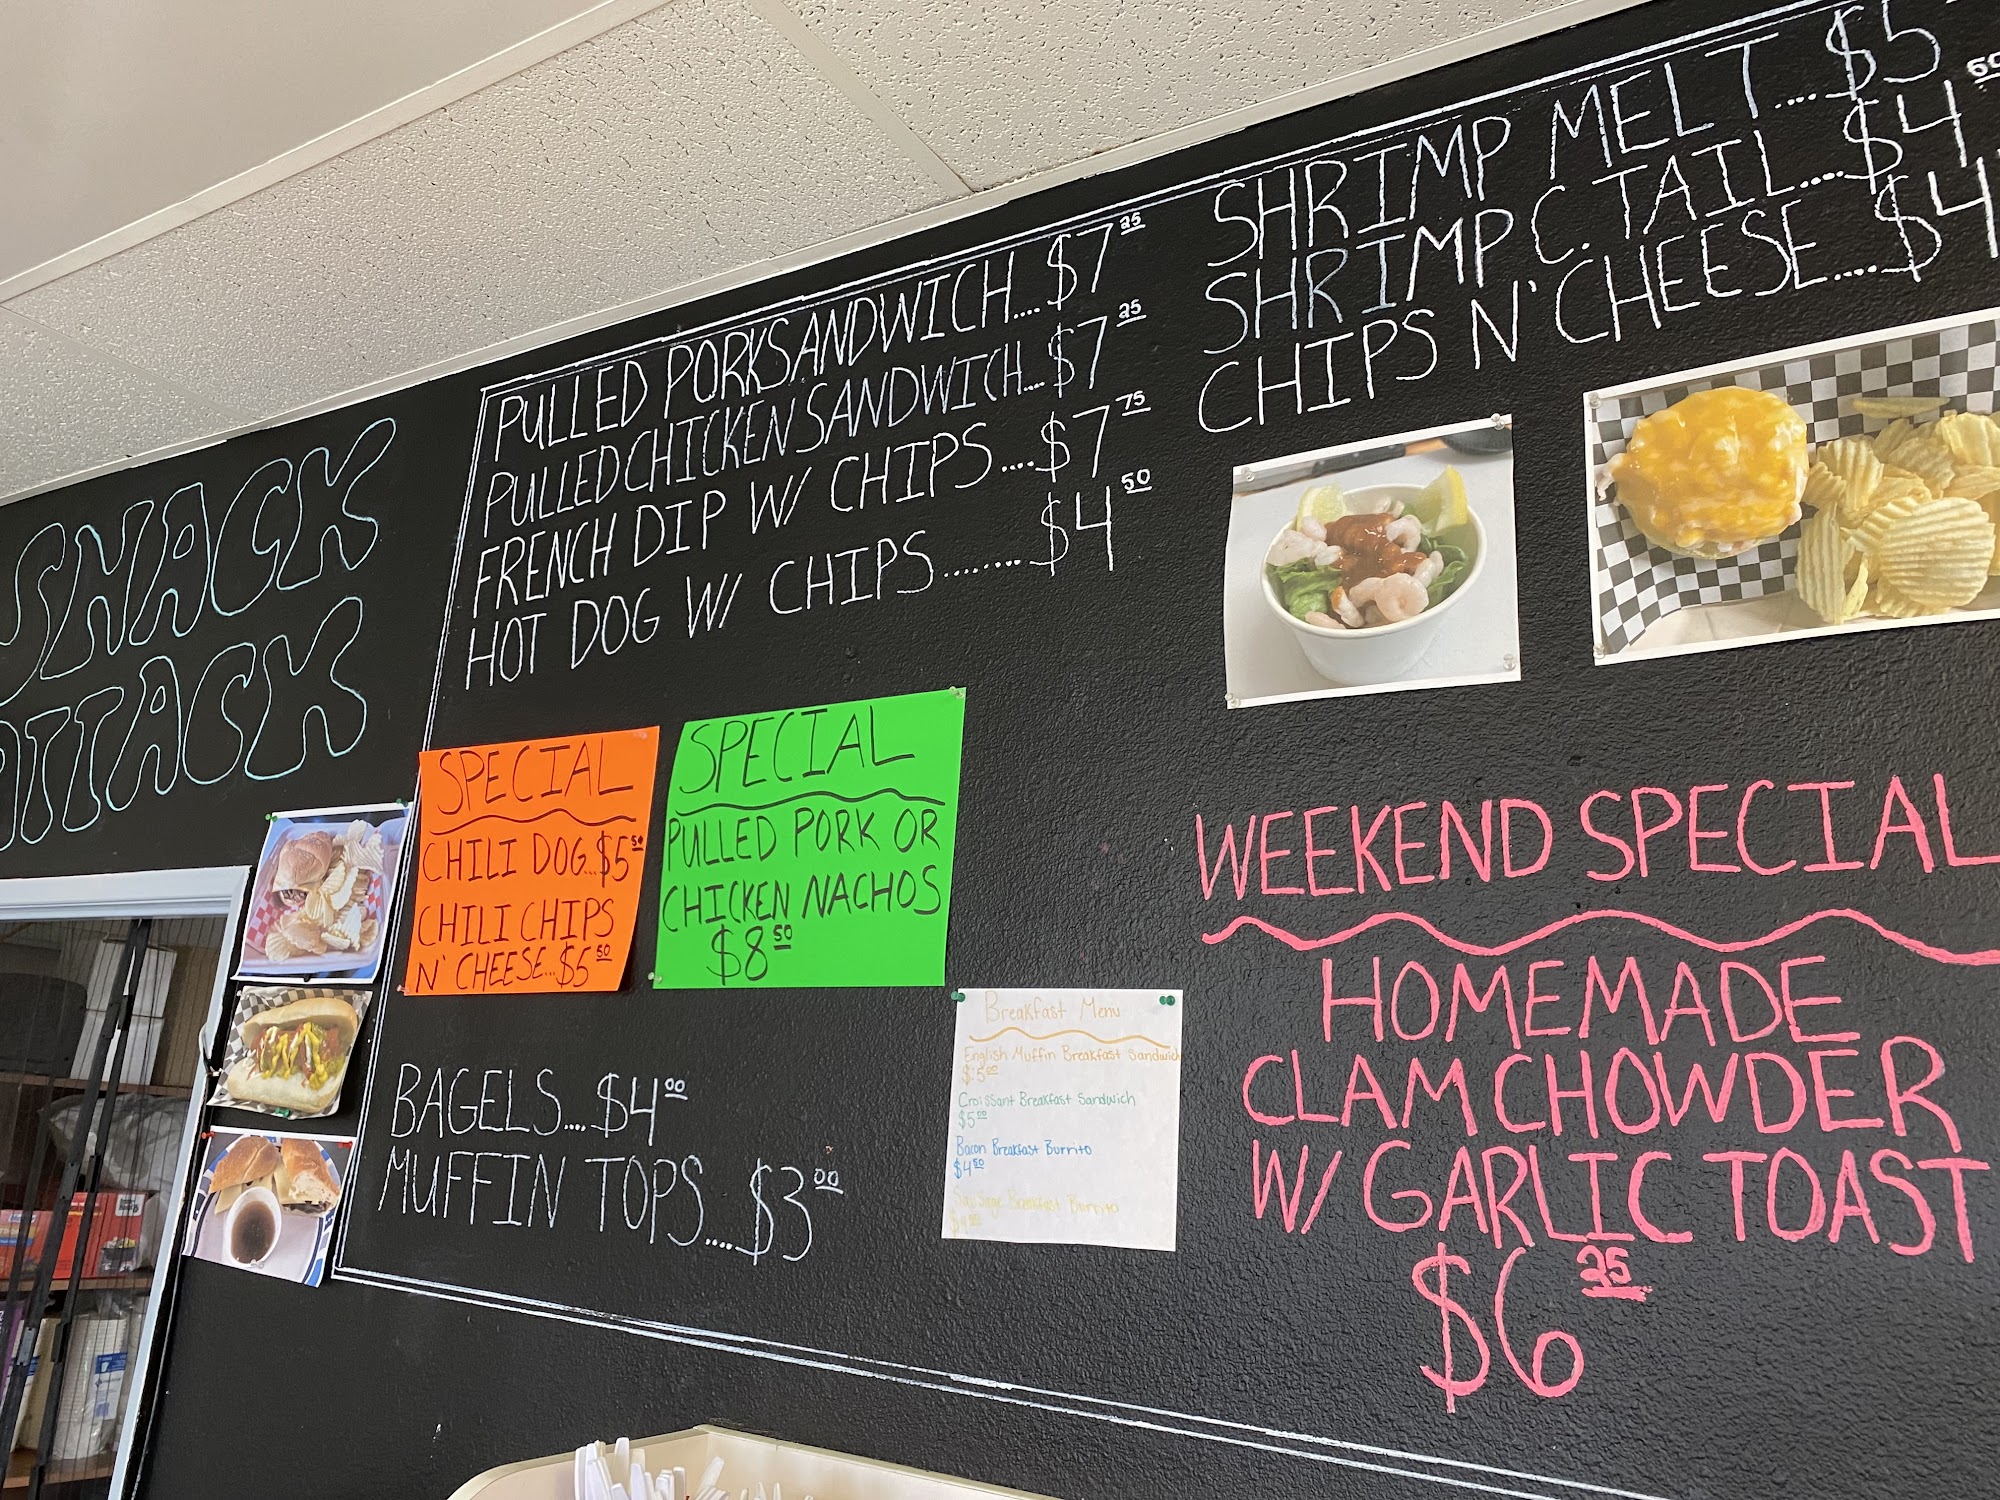 SNACK
ATTACK
PULLED PORK SANDWICH....$7 25
PULLED CHICKEN SANDWICH....$7 25
FRENCH DIP W/ CHIPS....$7 75
HOT DOG W/ CHIPS........$4 50
SHRIMP MELT....$5
SHRIMP C. TAIL....$4 50
CHIPS N' CHEESE....$4
SPECIAL
CHILI DOG...$5 50
CHILI CHIPS
N' CHEESE...$5 50
SPECIAL
PULLED PORK OR
CHICKEN NACHOS
$8 50
BAGELS....$4 00
MUFFIN TOPS....$3 00
Breakfast Menu
English Muffin Breakfast Sandwich
$5 00
Croissant Breakfast Sandwich
$5 00
Bacon Breakfast Burrito
$4 50
Sausage Breakfast Burrito
WEEKEND SPECIAL
HOMEMADE
CLAM CHOWDER
W/ GARLIC TOAST
$6 25